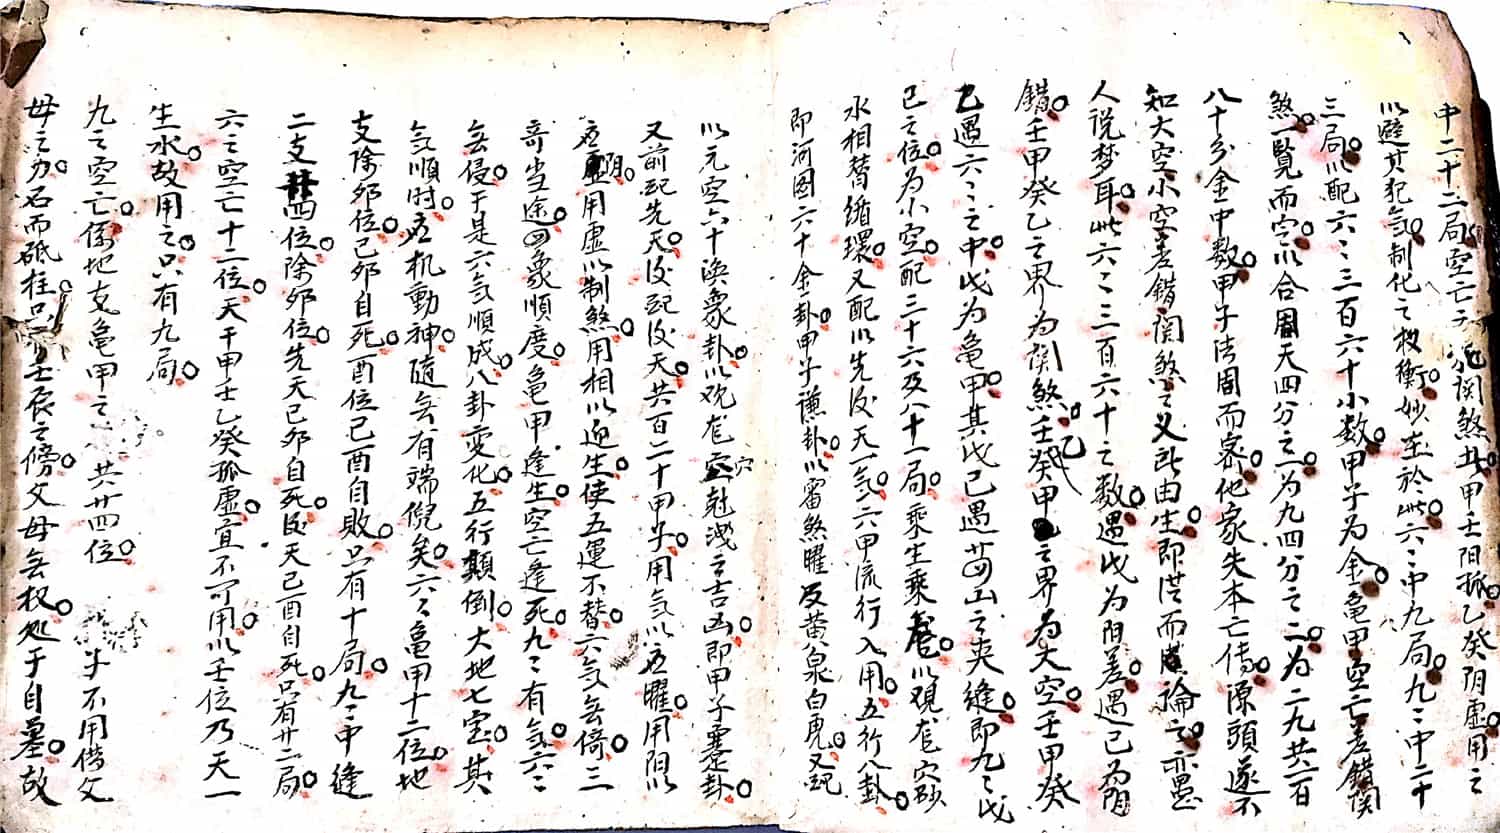 中二十二局空亡子 犯関煞丑甲壬陽孤。乙癸阴虚。用之
以避其犯。気制化之权衡。妙在於此。六〻中九局。九〻中二十
三局。以配六〻三百六十小数。甲子为金。亀甲空亡差错関
煞。一覧而空。以合周天四分之一为九四分之二。为二九共一百
八十分金中数。甲子法周而宻。他家失本亡傳源頭。遂不
知大空小空差错関煞之义。所由生。即濙而成論之。亦愚
人说梦耳。此六〻三百六十之数。遇戊为阳差。遇己为阴
错。壬甲癸乙之界为関煞。壬癸甲之界为大空。壬甲癸
乙遇六〻之中。戊为亀甲。其戊己遇廿四山之夹縫。即九〻戊
己之位。为小空。配三十六及八十一局。乘生乘。以观龙穴砂
水相替循環。又配以先後天一気。六甲流行入用。五行八卦。
即河图六十金卦。甲子谦卦。以審煞曜及黄泉白虎。又記
以元空六十渙象卦。以观龙穴尅洩之吉凶。即甲子蹇卦。
又前記先天。後記後天。共百二十甲子。用気以应曜。用阳以
应阴。用虚以制煞。用相以迎生。使五運不替。六気无倚。三
奇当途。四象順度。亀甲逢生。空亡逢死。九〻有気。六〻
无侵。于是六気順成。八卦变化。五行顛倒。大地七宝。其
気順时。应机動神。隨无有端倪矣。六〻亀甲十二位。地
支除卯位。己卯自死。酉位己酉自敗。只有十局。九〻中縫
二支四位。除卯位。先天己卯自死。後天己酉自死。只有廿二局。
六〻空亡十二位。天干甲壬乙癸孤虚。宜不可用。以壬位乃天一
生水。故用之。只有九局。
九〻空亡。係地支亀甲之 共廿四位。 子不用借父
母之力。石而砥柱。 壬辰之傍。父母无权。処于自墓。故